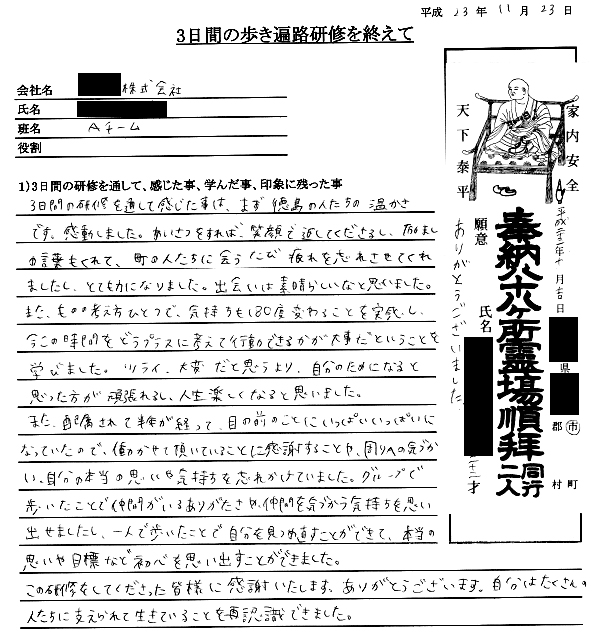 平成 23 年 11 月 23 日
3日間の歩き遍路研修を終えて
会社名 株式会社
氏名
班名 Aチーム
役割
1)3日間の研修を通して、感じた事、学んだ事、印象に残った事
3日間の研修を通して感じた事は、まず徳島の人たちの温かさ
です。感動しました。あいさつをすれば、笑顔で返してくださるし、励まし
の言葉もくれて、町の人たちに会うたび疲れを忘れさせてくれ
ましたし、とても力になりました。出会いは素晴らしいなと思いました。
また、ものの考え方ひとつで、気持ちも180度変わることを実感し、
今この時間をどうプラスに考えて行動できるかが大事だということを
学びました。ツライ、大変だと思うより、自分のためになると
思った方が頑張れるし、人生楽しくなると思いました。
また、配属されて半年が経って、目の前のことにいっぱいいっぱいに
なっていたので、働かせて頂いていることに感謝することや、周りへの気づか
い、自分の本当の思いや気持ちを忘れかけていました。グループで
歩いたことで仲間がいるありがたさや、仲間を気づかう気持ちを思い
出せましたし、一人で歩いたことで自分を見つめ直すことができて、本当の
思いや目標など初心を思い出すことができました。
この研修をしてくださった皆様に感謝いたします。ありがとうございます。自分はたくさんの
人たちに支えられて生きていることを再認識できました。
家内安全
天下泰平
平成二十三年十一月吉日
奉納八十八ヶ所霊場順拝 同行二人
願意 ありがとうございました。
氏名
県
郡 市
村 町
二十二才